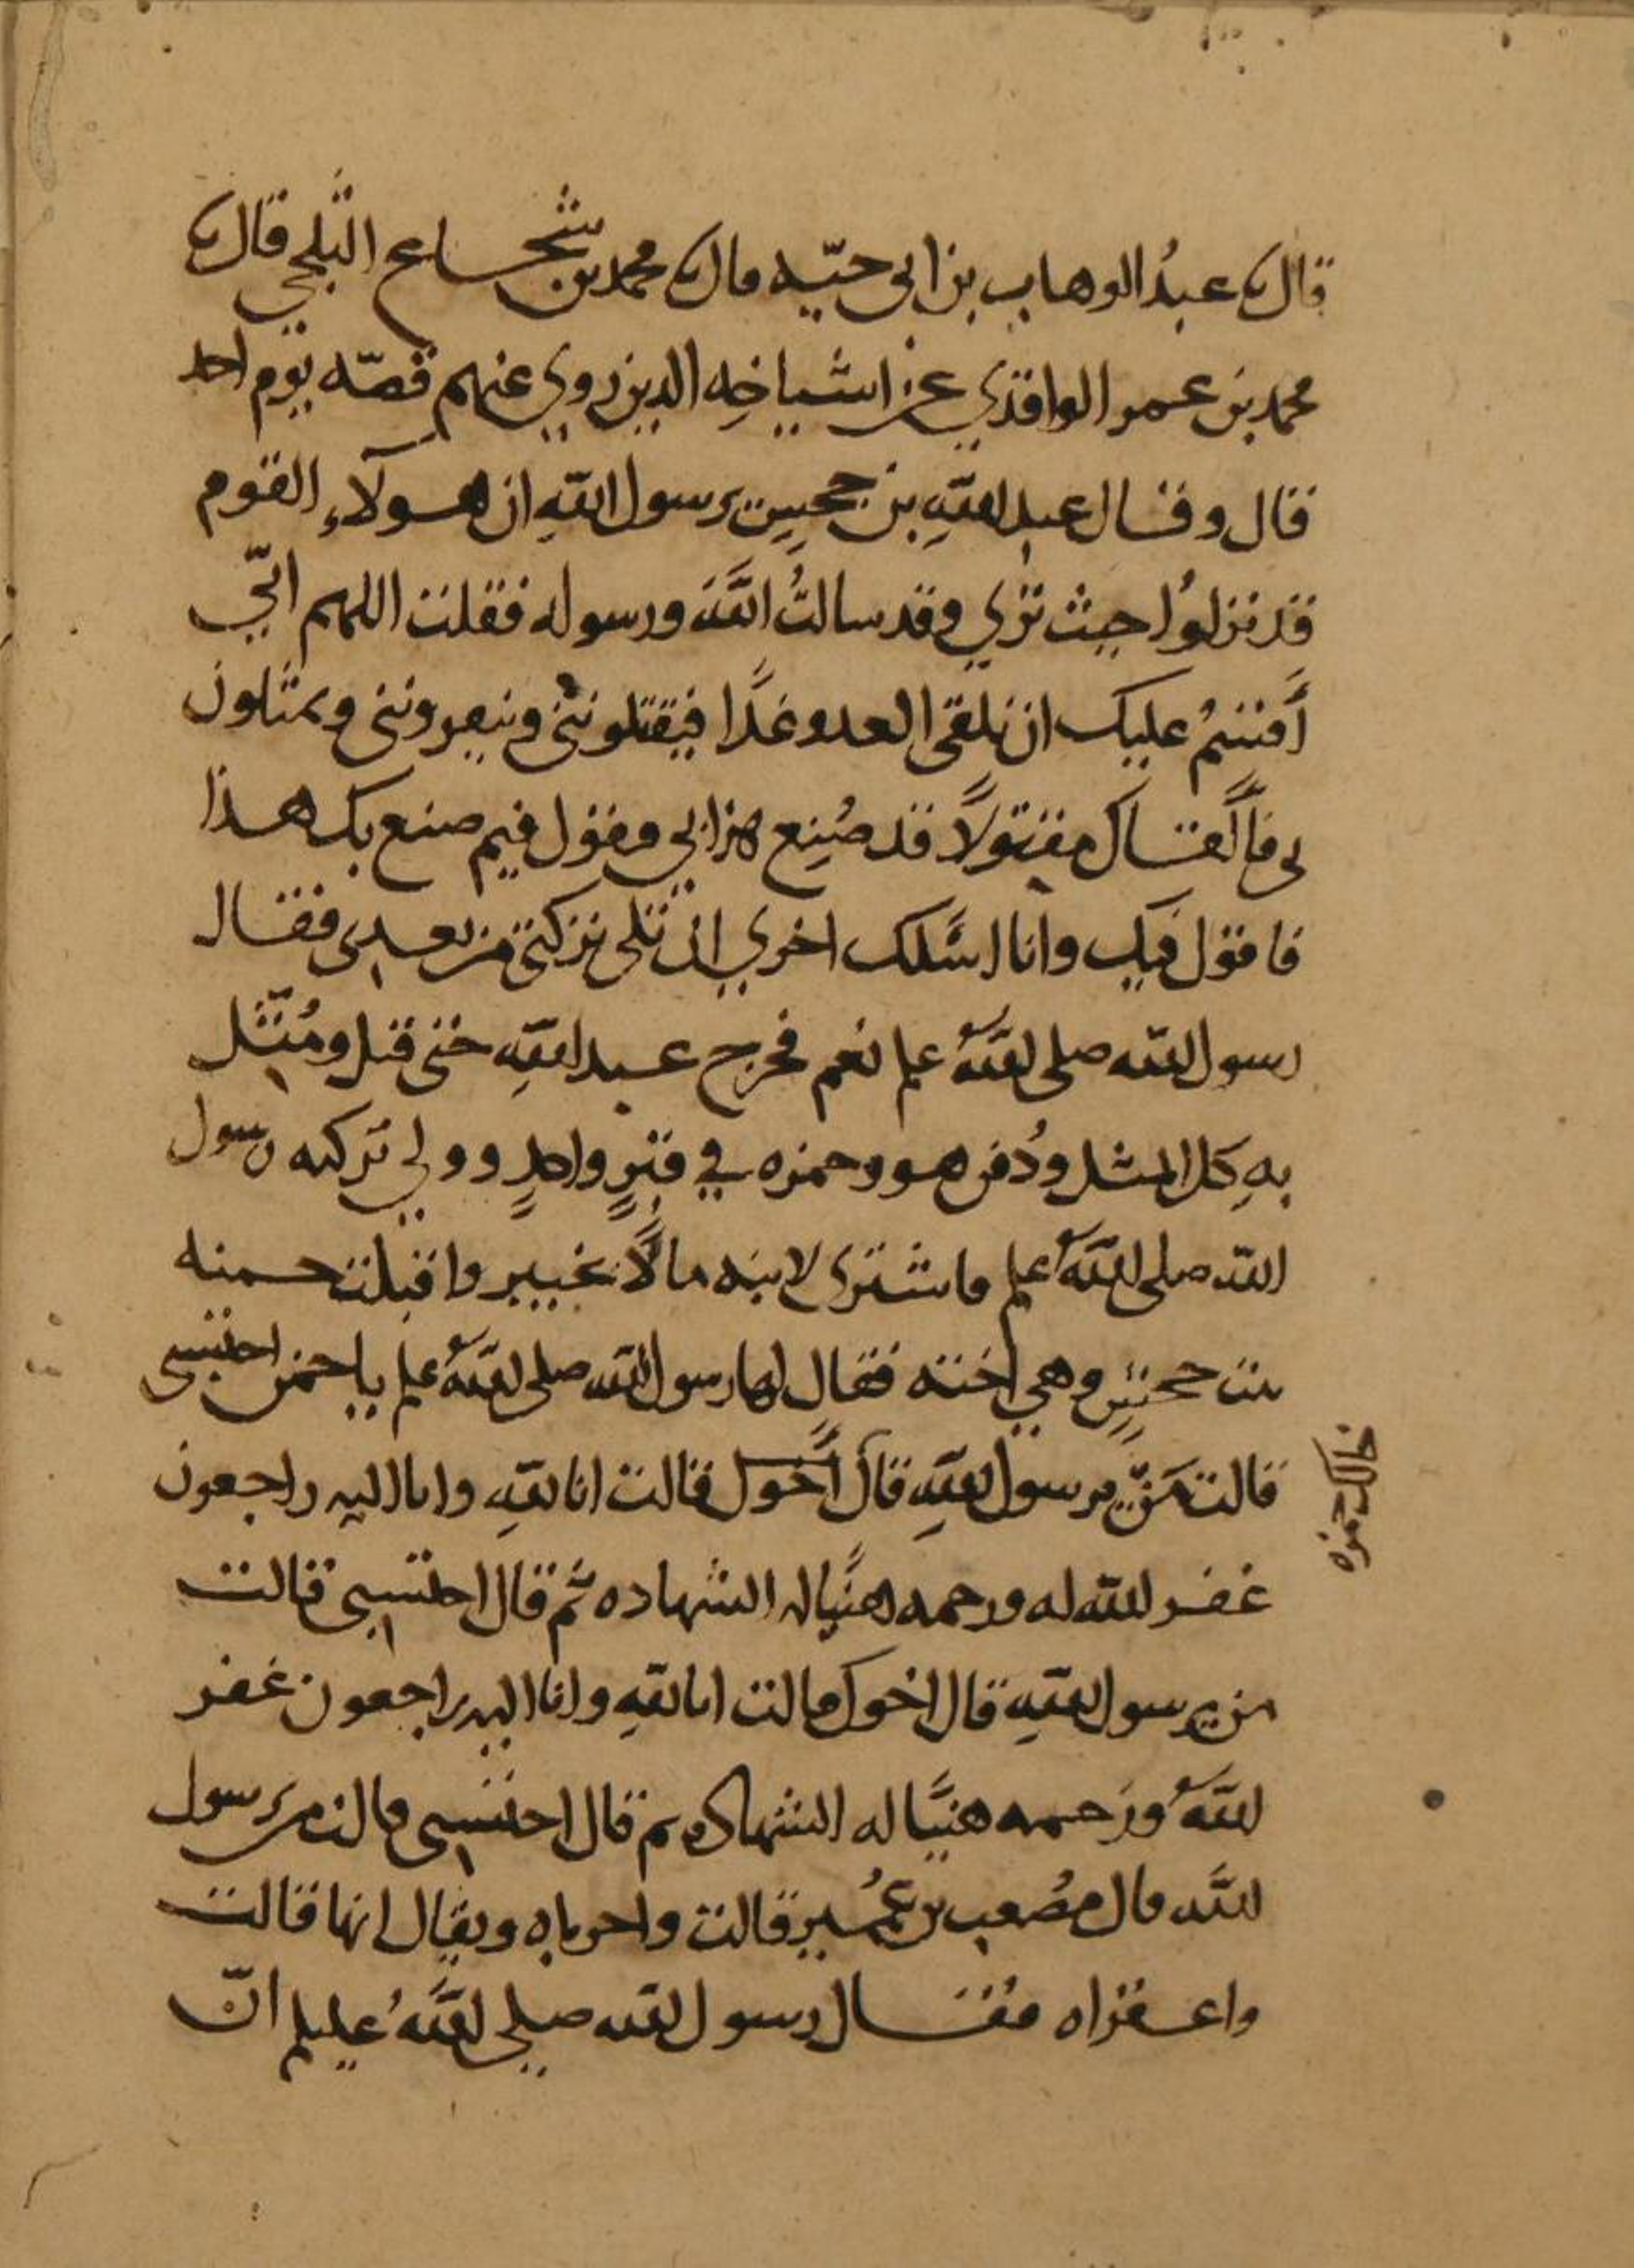 قال نا عبدُ الوهاب بن ابى حيّه قال نا محمد بن شجاع الثلجي قال نا
محمد بن عمر الواقدي عن اشياخِه الذين روي عنهم قصّه يوم احد
قال وقال عبد اللهِ بن جحشٍ يرسول اللهِ ان هولآءِ القوم
قد نزلوُا حيث تري وقد سالتُ اللهَ ورسوله فقلت اللهم انّي
أُقسمُ عليك ان نلقى العدو غدًا فيقتلونني ويبقرونني ويمثلون
بى فألقاك مقتولًا قد صُنِع هذا بي فتقول فيم صنع بك هذا
فاقول فيك وانا اسَلك اخري ان تلى تركتي من بعدى فقال
رسول الله صلى اللهُ علم نعم فخرج عبد اللهِ حتى قتل ومُثّل
بهِ كل المثل ودُفن هو وحمزه في قبرٍ واحدٍ وولي تركته رسول
الله صلى اللهُ علم فاشترى لابنه مالًا بخيبر واقبلت حمنه
بنت جحشٍ وهي اخته فقال لها رسول الله صلى اللهُ علم ياحمن احتسبى
قالت مَن يرسول اللهِ قال خالك قالت انا للهِ وانا اليه راجعون
خالك حمزه
غفر الله له ورحمه هنيًا له الشهاده ثم قال احتسبى قالت
من يرسول اللهِ قال اخوك قالت انا للهِ وانا اليه راجعون غفر
اللهُ ورَحمه هنيًا له الشهاده ثم قال احتسبى قالت من يرسول
الله قال مصُعب بن عمُير قالت واحرباه ويقال انها قالت
واعقراه فقال رسول الله صلي اللهُ عليلم انّ